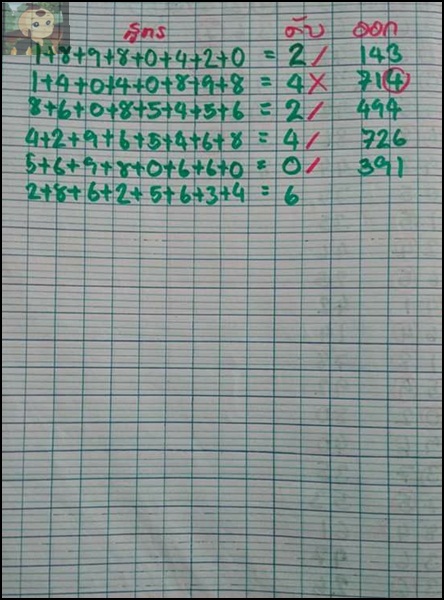 สูตร ดับ ออก
1+8+9+8+0+4+2+0 = 2/ 143
1+4+0+4+0+8+9+8 = 4X 714
8+6+0+8+5+4+5+6 = 2/ 494
4+2+9+6+5+4+6+8 = 4/ 726
5+6+9+8+0+6+6+0 = 0/ 391
2+8+6+2+5+6+3+4 = 6